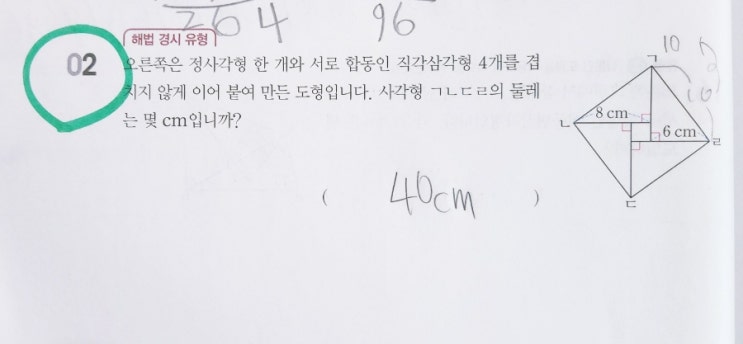 264 96
해법 경시 유형
02 오른쪽은 정사각형 한 개와 서로 합동인 직각삼각형 4개를 겹
치지 않게 이어 붙여 만든 도형입니다. 사각형 ㄱㄴㄷㄹ의 둘레
는 몇 cm입니까?
( 40cm )
10
ㄱ
10
8 cm
ㄴ
6 cm
ㄹ
ㄷ